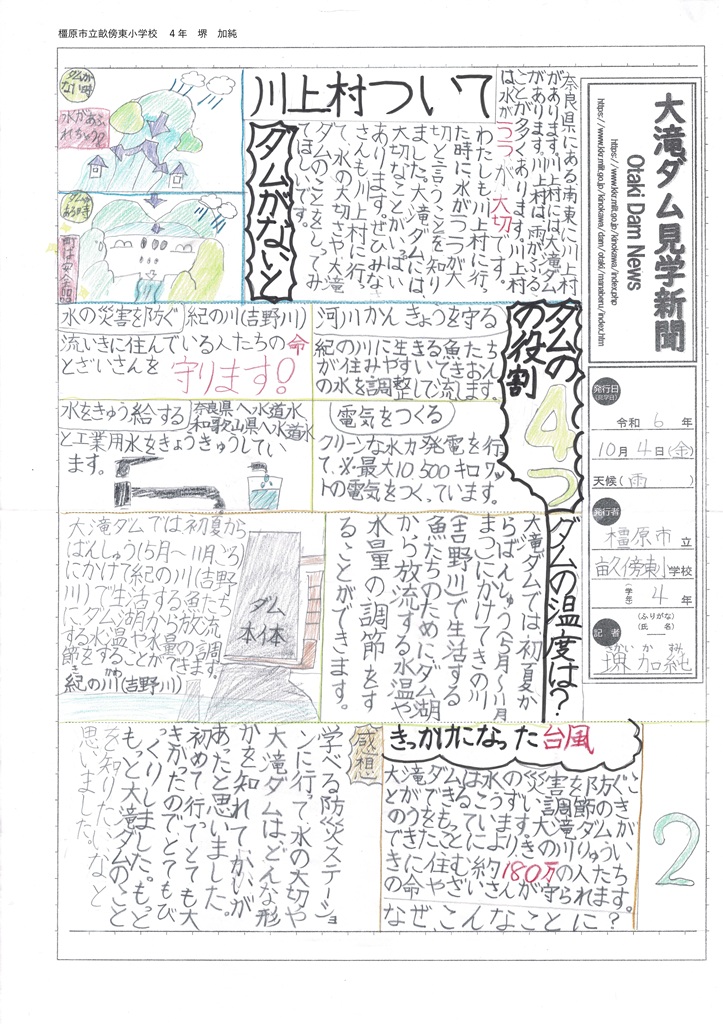 橿原市立畝傍東小学校　４年　堺　加純
大滝ダム見学新聞
Otaki Dam News
https://www.kkr.mlit.go.jp/kinokawa/index.php
https://www.kkr.mlit.go.jp/kinokawa/dam/otaki/manabam/index.htm
発行日
(見学日)
令和 6 年
10月 4日(金)
天候(雨)
発行者
橿原市立
畝傍東小学校
(学年) 4年
記者
(ふりがな)
(氏名)
さかい かすみ
堺 加純
川上村ついて
奈良県にある南東に川上村
があります。川上村には大滝ダム
があります。川上村は、雨がふる
ことが多くあります。川上村
は水が
つつが大切です。
わたしも川上村に行っ
た時に水がつつが大
切と言うことを知り
ました。大滝ダムには、
大切なことがいっぱい
あります。ぜひみな
さんも川上村に行っ
て、水の大切さや大滝
ダムのことをしてみ
てほしいです。
ダムがないと
ダムが
ない時
水があふ
れちゃう
ダムが
ある時
町は安全
ダムの
の役割
4つ
河川かんきょうを守る
紀の川に生きる魚たち
が住みやすいてきおん
の水を調整して流します。
水の災害を防ぐ
紀の川(吉野川)
流いきに住んでいる人たちの命
とざいさんを
守ります!
電気をつくる
クリーンな水力発電を行っ
て、※最大10,500キロワッ
トの電気をつくっています。
水をきゅう給する
奈良県へ水道水
和歌山県へ水道水
と工業用水をきょうきゅうしてい
ます。
ダムの温度は？
大滝ダムでは、初夏か
らばんしゅう(5月~11月
まで)にかけてきの川
(吉野川)で生活する
魚たちのためにダム湖
から放流する水温や
水量の調節をす
ることができます。
大滝ダムでは初夏から
ばんしゅう(5月~11月ごろ)
にかけて紀の川(吉野
川)で生活する魚たち
にダム湖から放流
する水温や水量の調
節をすることができます。
ダム
本体
紀の川(吉野川)
きっかけになった台風
180万
なぜ、こんなことに？
感想
学べる防災ステーショ
ンに行って、水の大切や
大滝ダムはどんな形
かを知れてかいが
あったと思いました。
初めて行ってとても大
きかったのでとてもび
っくりしました。もっと
もっと大滝ダムのこと
を知りたいなと
思いました。
2